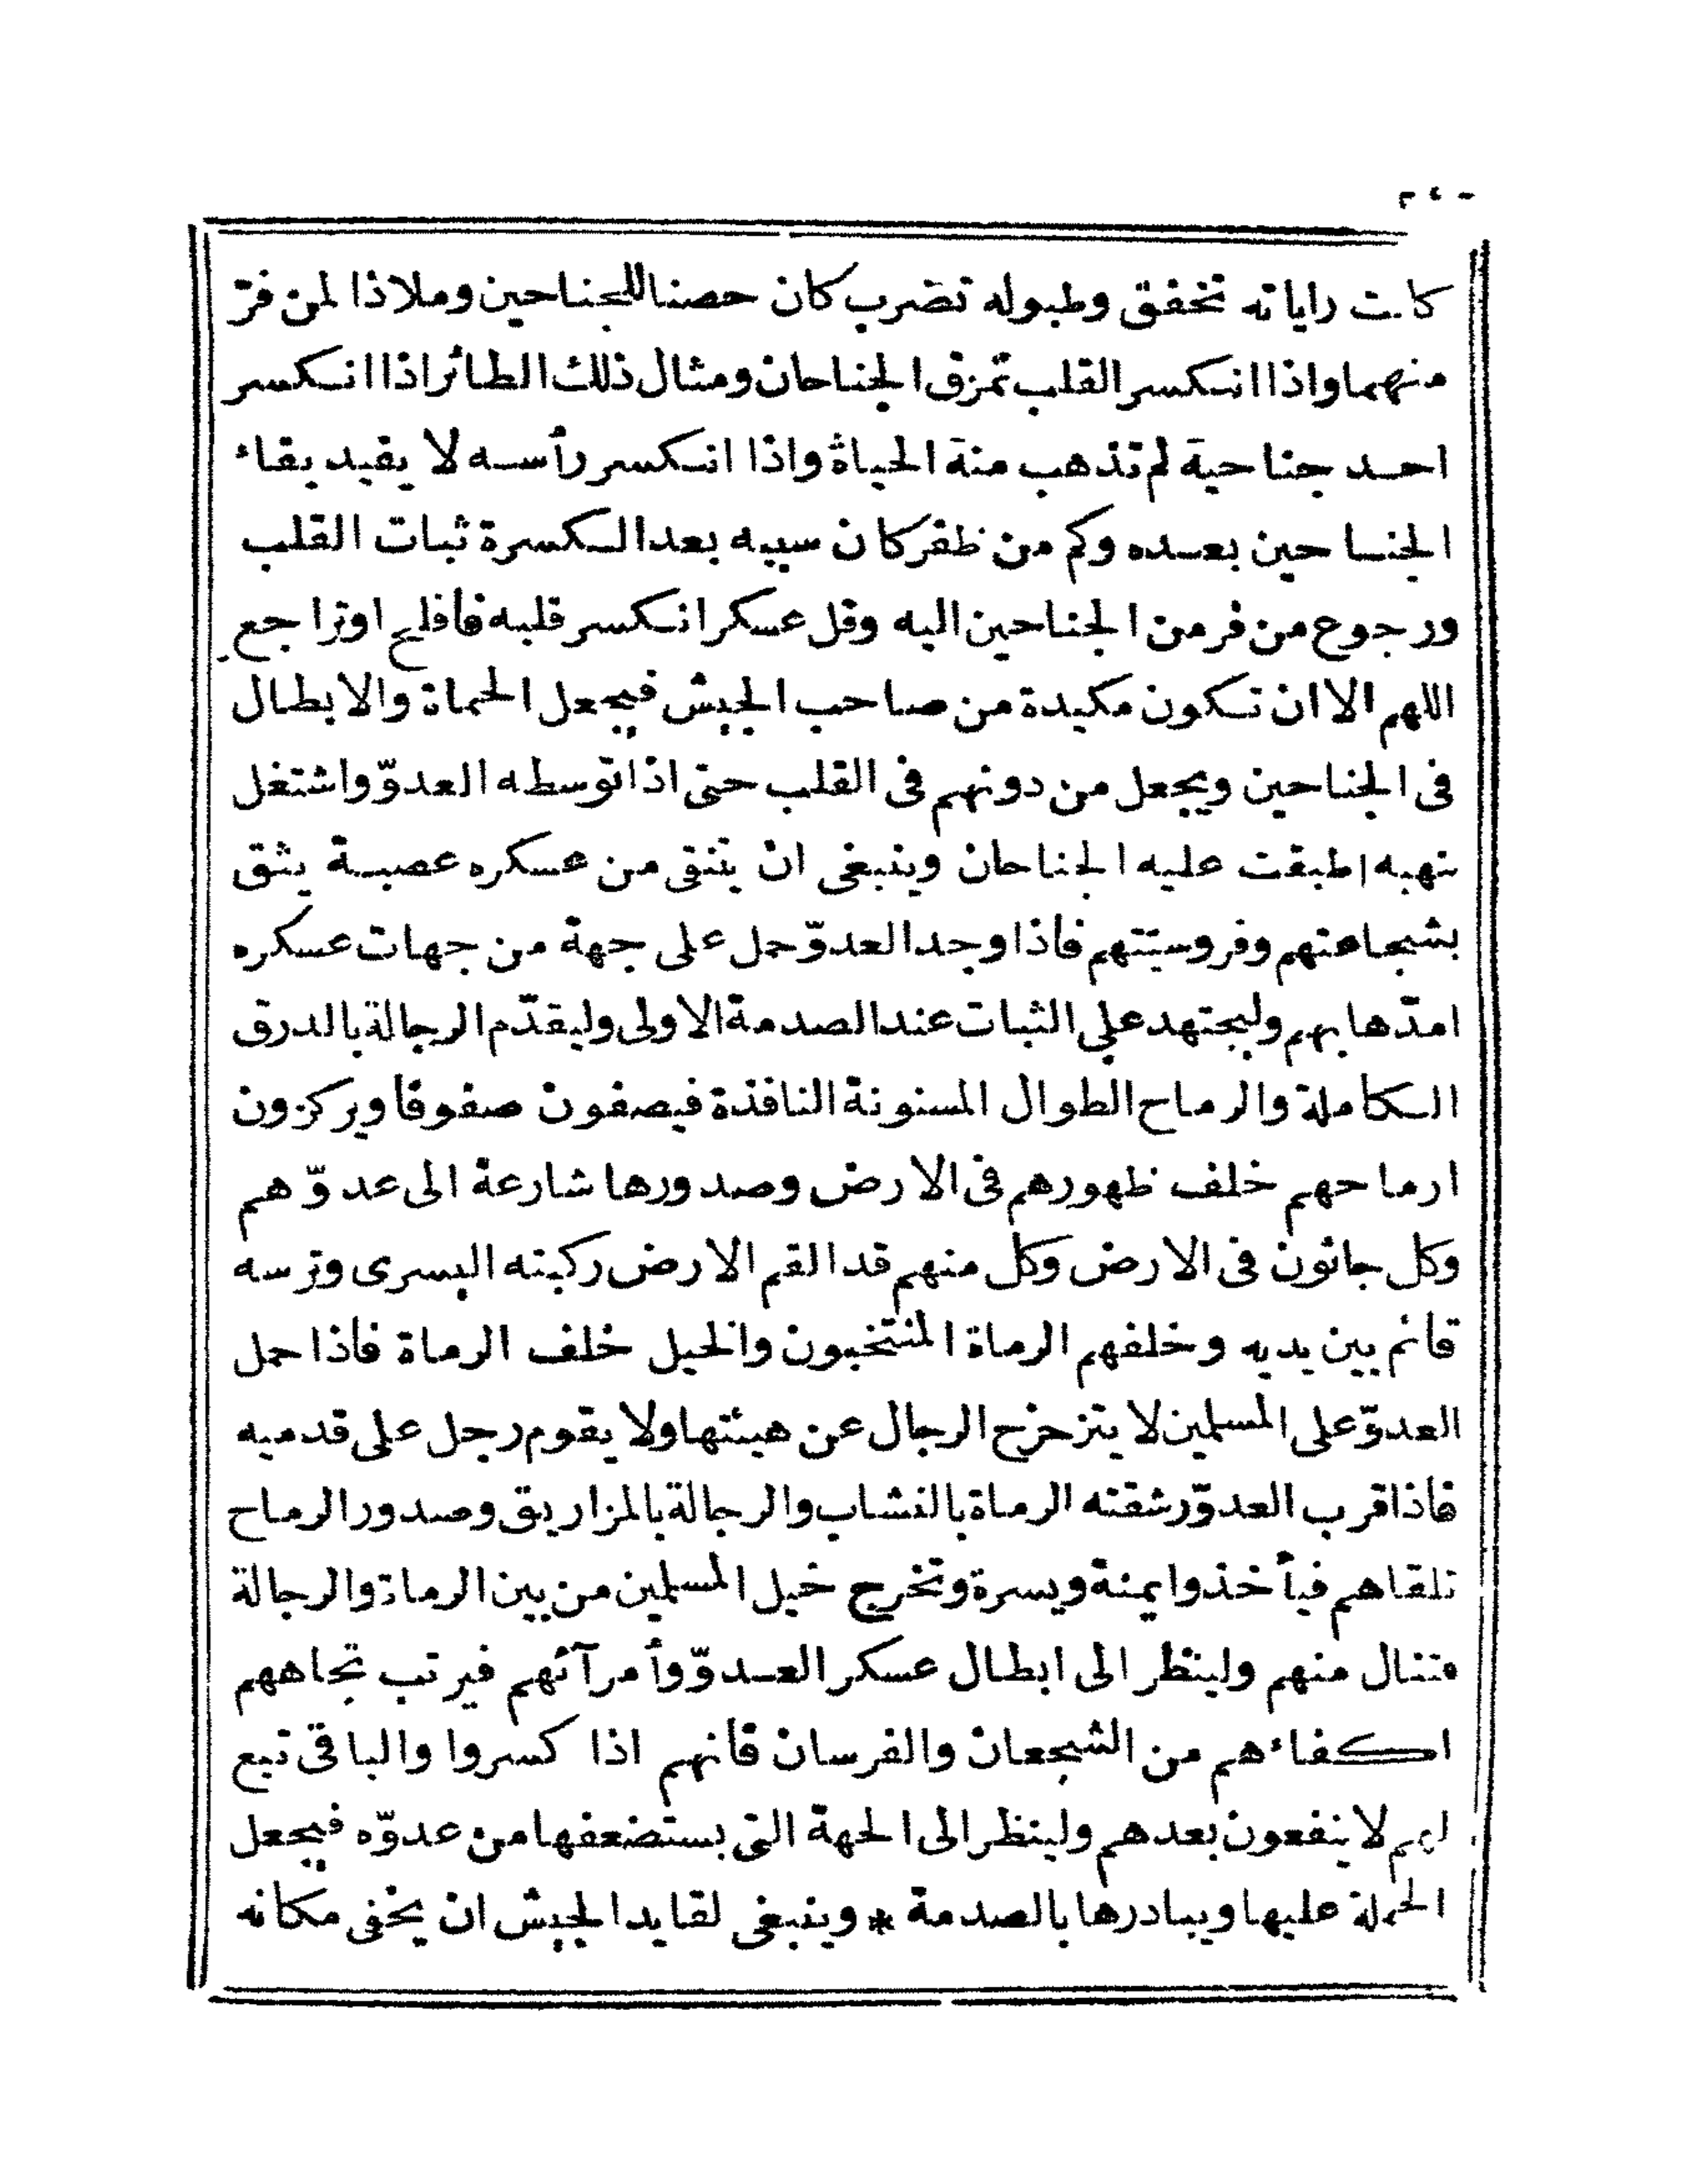 كانت راياته تخفق وطبوله تضرب كان حصنا للجناحين وملاذا لمن فرّ
منهما واذا انكسر القلب تمزق الجناحان ومثال ذلك الطائر اذا انكسر
احد جناحية لم تذهب منة الحياة واذا انكسر رأسه لا يفيد بقاء
الجناحين بعده وكم من ظفر كان سببه بعد الكسرة ثبات القلب
ورجوع من فر من الجناحين اليه وقل عسكر انكسر قلبه فافلح او تراجع
اللهم الا ان تكون مكيدة من صاحب الجيش فيجعل الحماة والابطال
فى الجناحين ويجعل من دونهم فى القلب حتى اذا توسطه العدوّ واشتغل
بنهبه اطبقت عليه الجناحان وينبغى ان ينتقى من عسكره عصبة يثق
بشجاعتهم وفروسيتهم فاذا وجد العدوّ حمل على جهة من جهات عسكره
امدّها بهم وليجتهد على الثبات عند الصدمة الاولى وليقدّم الرجالة بالدرق
الكاملة والرماح الطوال المسنونة النافذة فيصفون صفوفا ويركزون
ارماحهم خلف ظهورهم فى الارض وصدورها شارعة الى عدوّهم
وكل جاثون فى الارض وكل منهم قد القم الارض ركبته اليسرى وترسه
قائم بين يديه وخلفهم الرماة المنتخبون والخيل خلف الرماة فاذا حمل
العدوّ على المسلمين لا يتزحزح الرجال عن هيئتها ولا يقوم رجل على قدميه
فاذا قرب العدوّ رشقته الرماة بالنشاب والرجالة بالمزاريق وصدور الرماح
تلقاهم فيأخذوا يمنة ويسرة وتخرج خيل المسلمين من بين الرماة والرجالة
فتنال منهم ولينظر الى ابطال عسكر العدوّ وأمرآئهم فيرتب تجاههم
اكفاءهم من الشجعان والفرسان فانهم اذا كسروا والباقى تبع
لهم لا ينفعون بعدهم ولينظر الى الجهة التى يستضعفها من عدوّه فيجعل
الحملة عليها ويبادرها بالصدمة * وينبغى لقايد الجيش ان يخفى مكانه